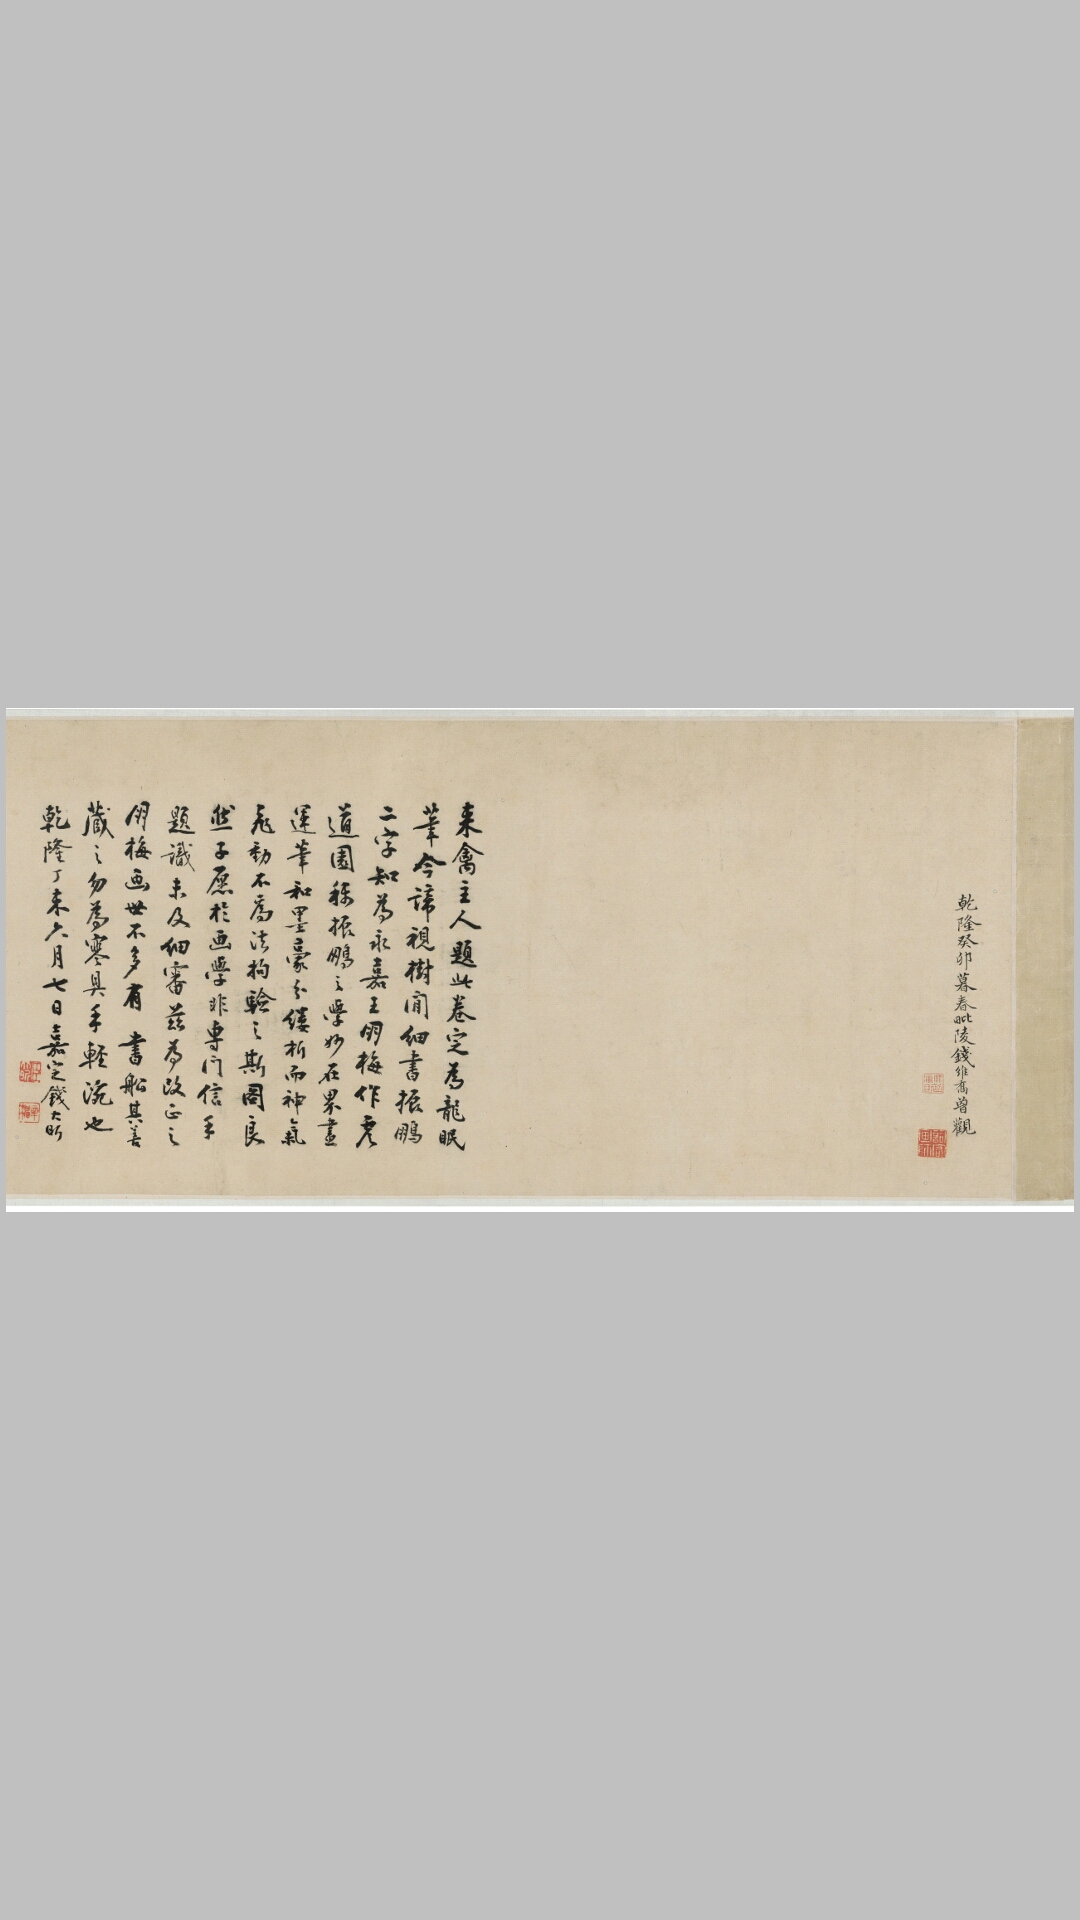 乾隆癸卯暮春毗陵錢維喬曾觀
來禽主人題此卷定為龍眠
筆今諦視樹間細書振鵬
二字知為永嘉王朋梅作虞
道園稱振鵬之學妙在界畫
運筆和墨毫分縷析而神氣
飛動不為法拘驗之斯圖良
然子愿於画學非專門信手
題識未及細審茲為改正之
朋梅画世不多有 書船其善
藏之勿為寒具手輕涴也
乾隆丁未六月七日嘉定錢大昕